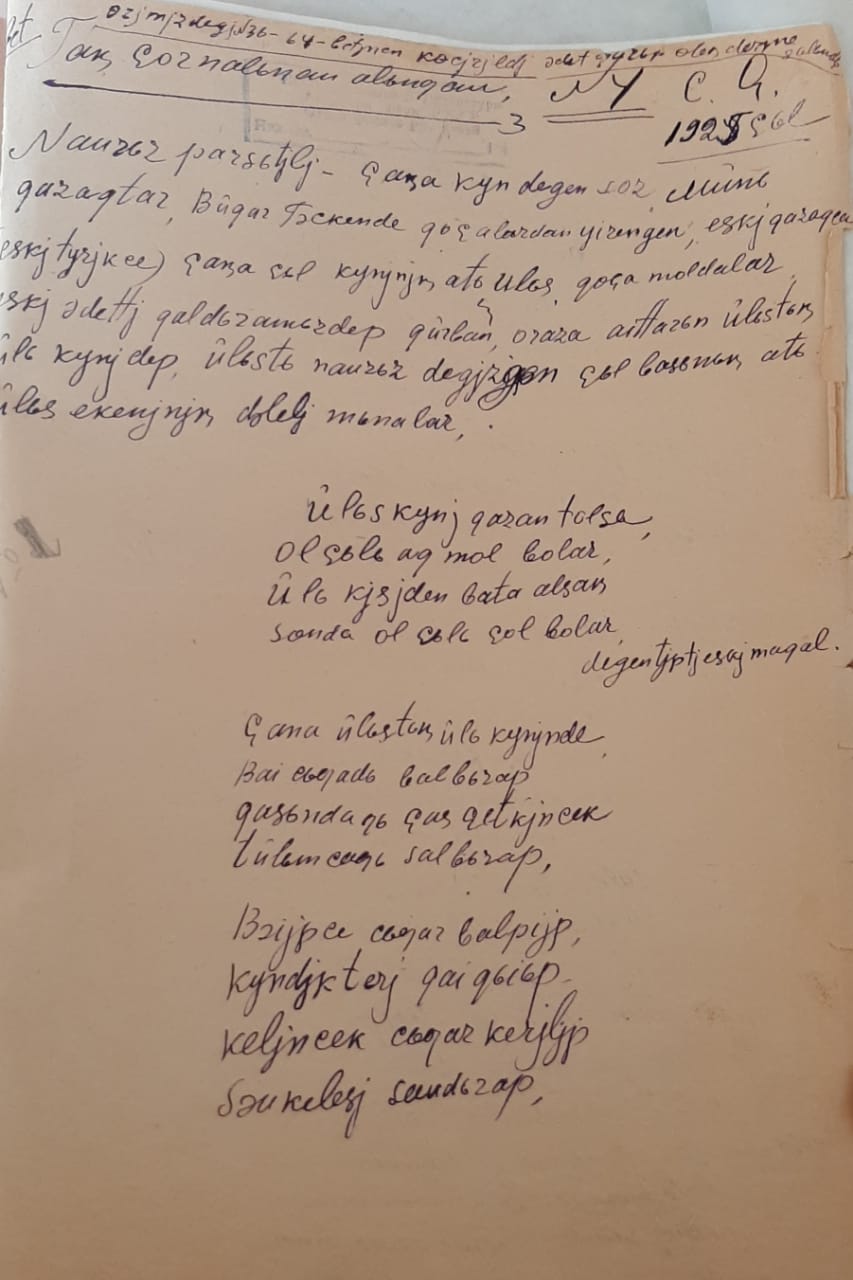 өzjmjzdegj №36-64-betjnen kөcjrjldj әdet ƣŗьp olen dermne
bet Taꞑ çornalьnan alьnƣan,
№1 C. Q.
3 1925 çьl
Naurьz parsьtjlj - çaꞑa kyn degen sөz, Mûnь
qazaqtar, Bûqar Tәckende qoçalardan yirengen, eskj qazaqca
eskj tyrjkce) çaꞑa çьl kynjnjꞑ atь Ûlьs, qoça moldalar
eskj әdettj qaldьramьz dep qûrban, oraza aittarьn ûlьstьꞑ
ûlь kynj dep, ûlьstь naurьz degjzgen çьl basьnьꞑ atь
ûlьs ekenjnjꞑ dәlelj mьnalar,
Ûlьs kynj qazan tolsa,
Ol çьlь aq mol bolar,
Ûlь kjsjden bata alsaꞑ
Sonda ol çьlь çol bolar
degen tjptj eskj maqal.
Çana ûlьstьꞑ ûlь kynjnde,
Bai cьƣadь balbьrap
qasьndaƣь ças çetkjncek
tûlьmcaƣь salbьrap,
Bәijpce cьƣar balpijp,
kyndjkterj qaiqьiьp
keljncek cьƣar kerjljp
Sәukelesj saudьrap,